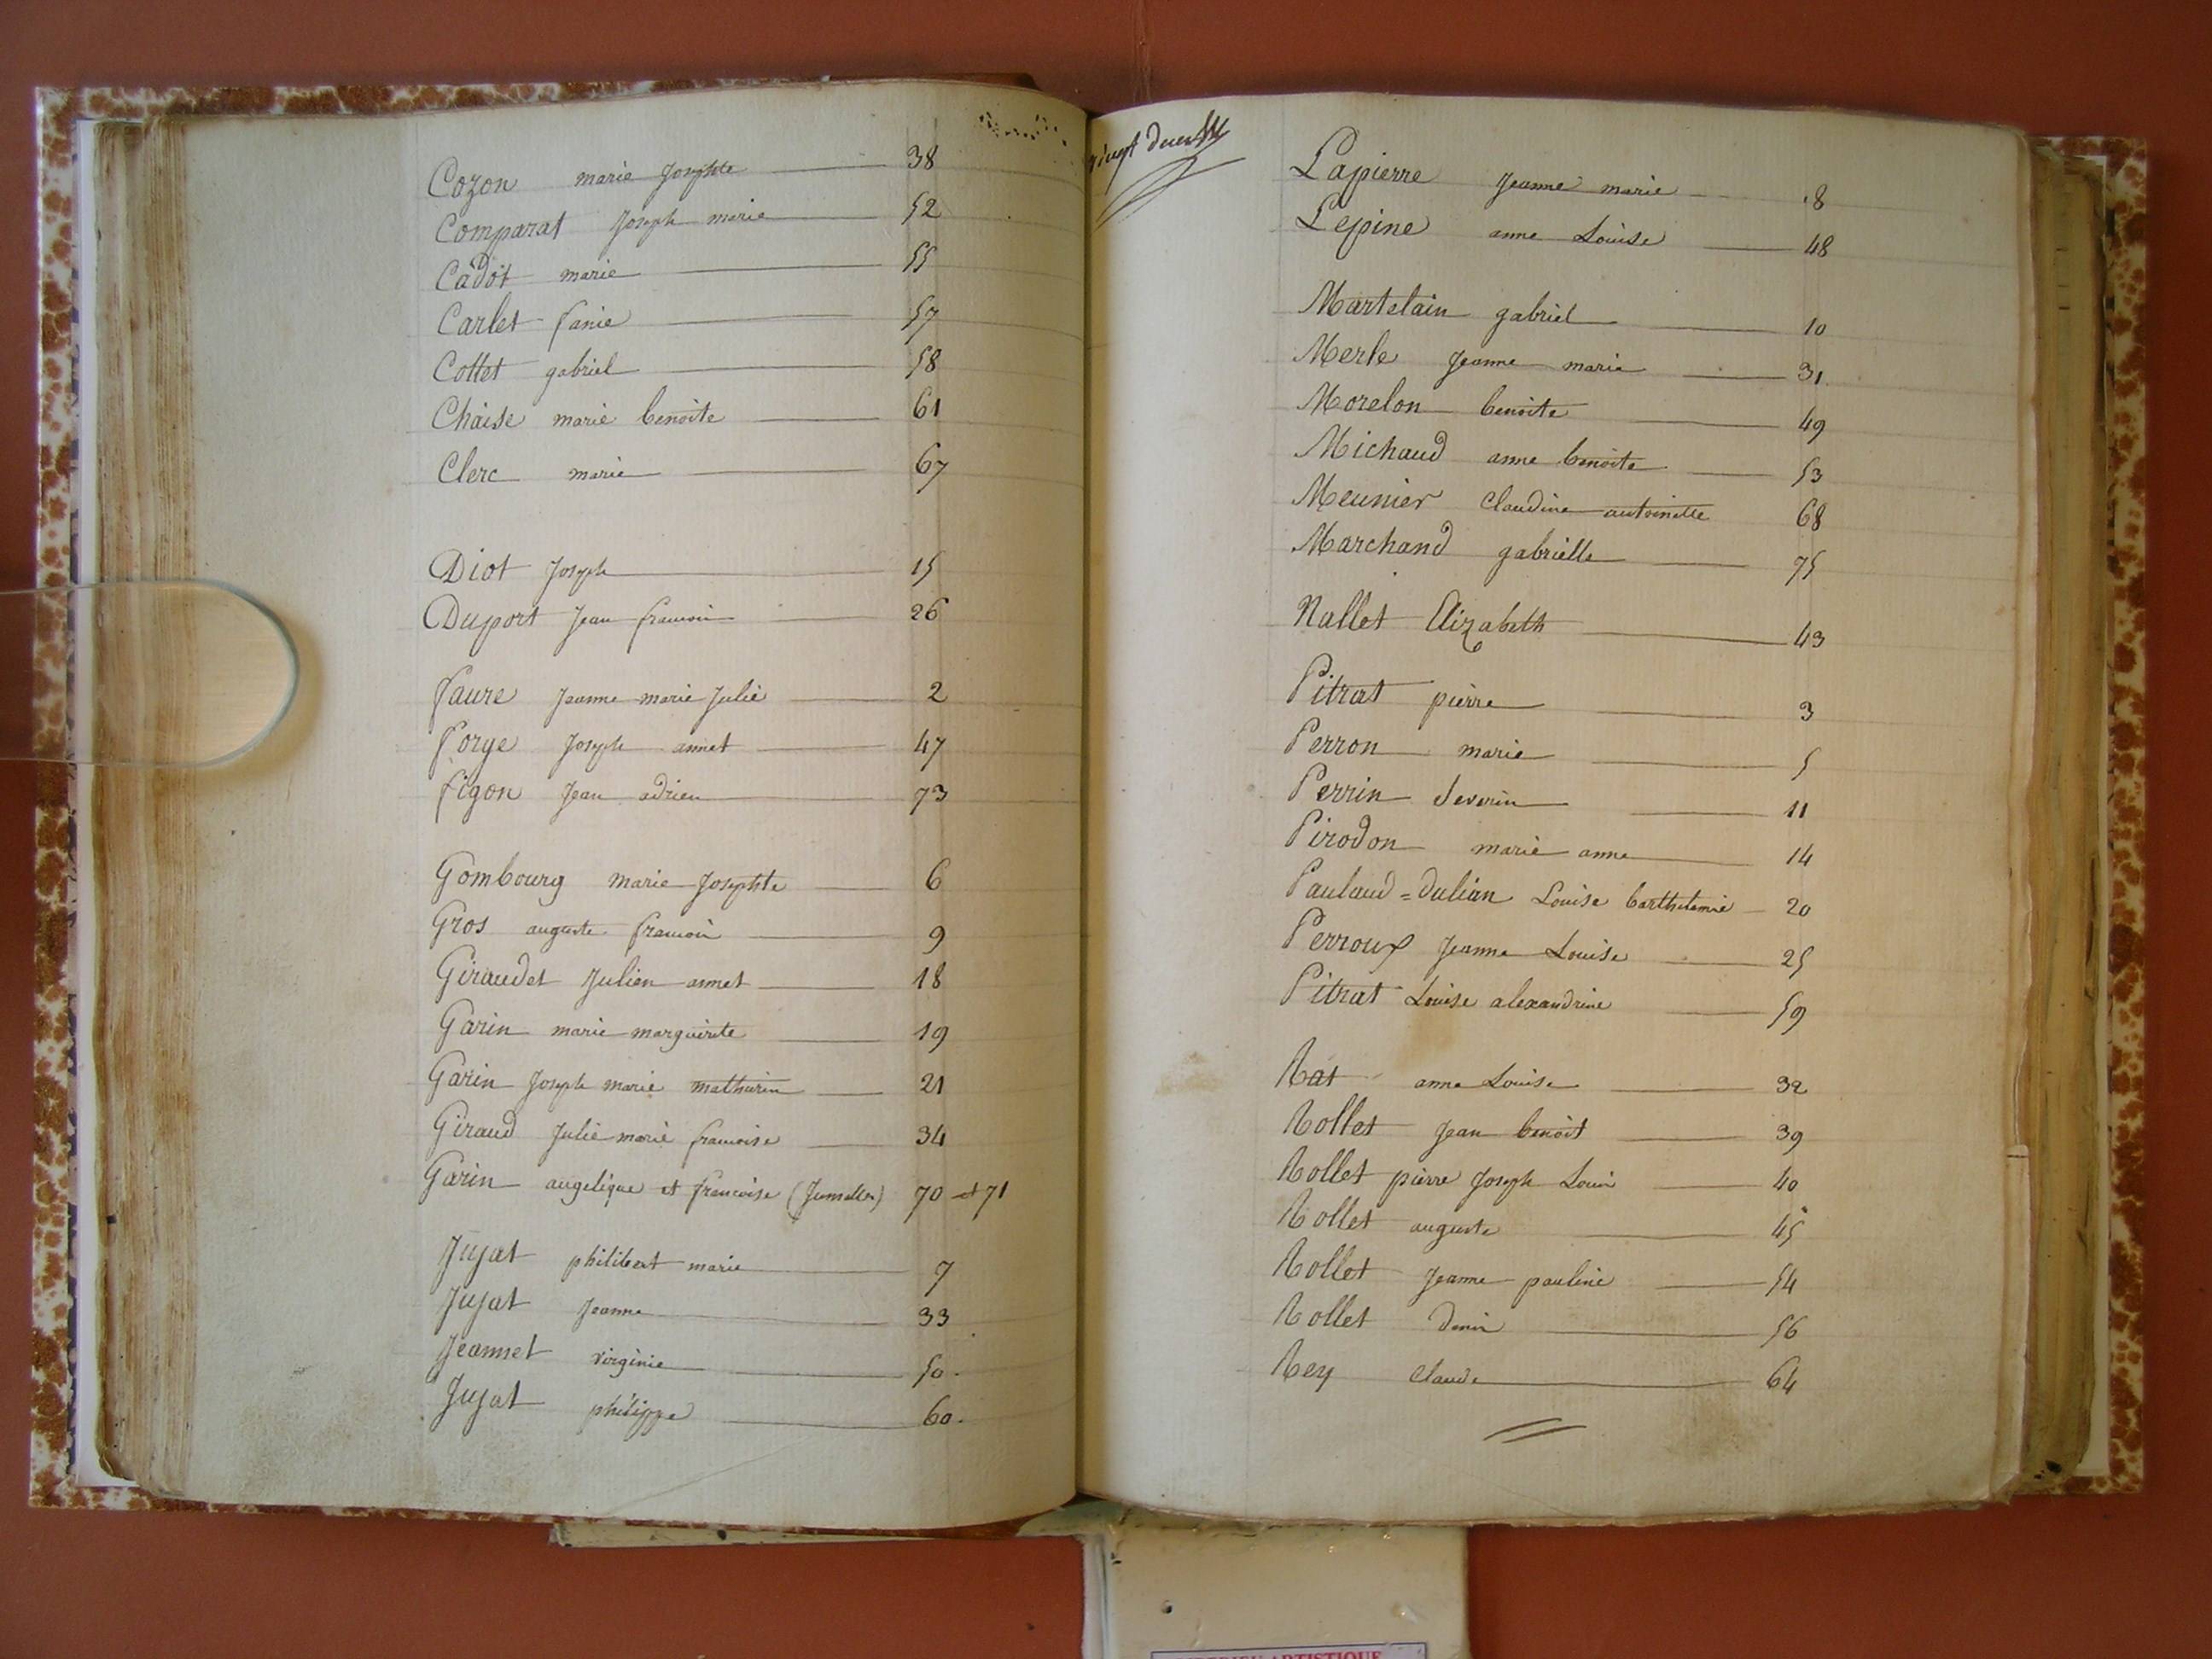 Cozon marie Josephte 38
Comparat Joseph marie 52
Cadot marie 55
Carlet fanie 57
Cottet gabriel 58
Chaise marie benoite 61
Clerc marie 67
Diot Joseph 15
Duport Jean francois 26
faure Jeanne marie Julie 2
forge Joseph annet 47
figon Jean adrien 73
Gombourg marie Josephte 6
Gros auguste francois 9
Giraudet Julien annet 18
Garin marie marguerite 19
Garin Joseph marie mathurin 21
Giraud Julie marie francoise 34
Garin angelique et francoise (Jumelles) 70 et 71
Jujat philibert marie 7
Jujat Jeanne 33
Jeannet virginie 50.
Jujat philippe 60.
vingt deux
Lapierre Jeanne marie 8
Lepine anne Louise 48
Martelain gabriel 10
Merle Jeanne marie 31
Morelon benoite 49
Michaud anne benoite 53
Meunier Claudine antoinette 68
Marchand gabrielle 75
Nallet Elizabeth 43
Pitrat pierre 3
Perron marie 5
Perrin Severin 11
Pirodon marie anne 14
Paulaud=Dulian Louise barthelemie 20
Perroux Jeanne Louise 25
Pitrat Louise alexandrine 59
Rat anne Louise 32
Rollet Jean benoit 39
Rollet pierre Joseph Louis 40
Rollet auguste 45
Rollet Jeanne pauline 54
Rollet Denis 56
Rey Claude 64
ARTISTIQUE